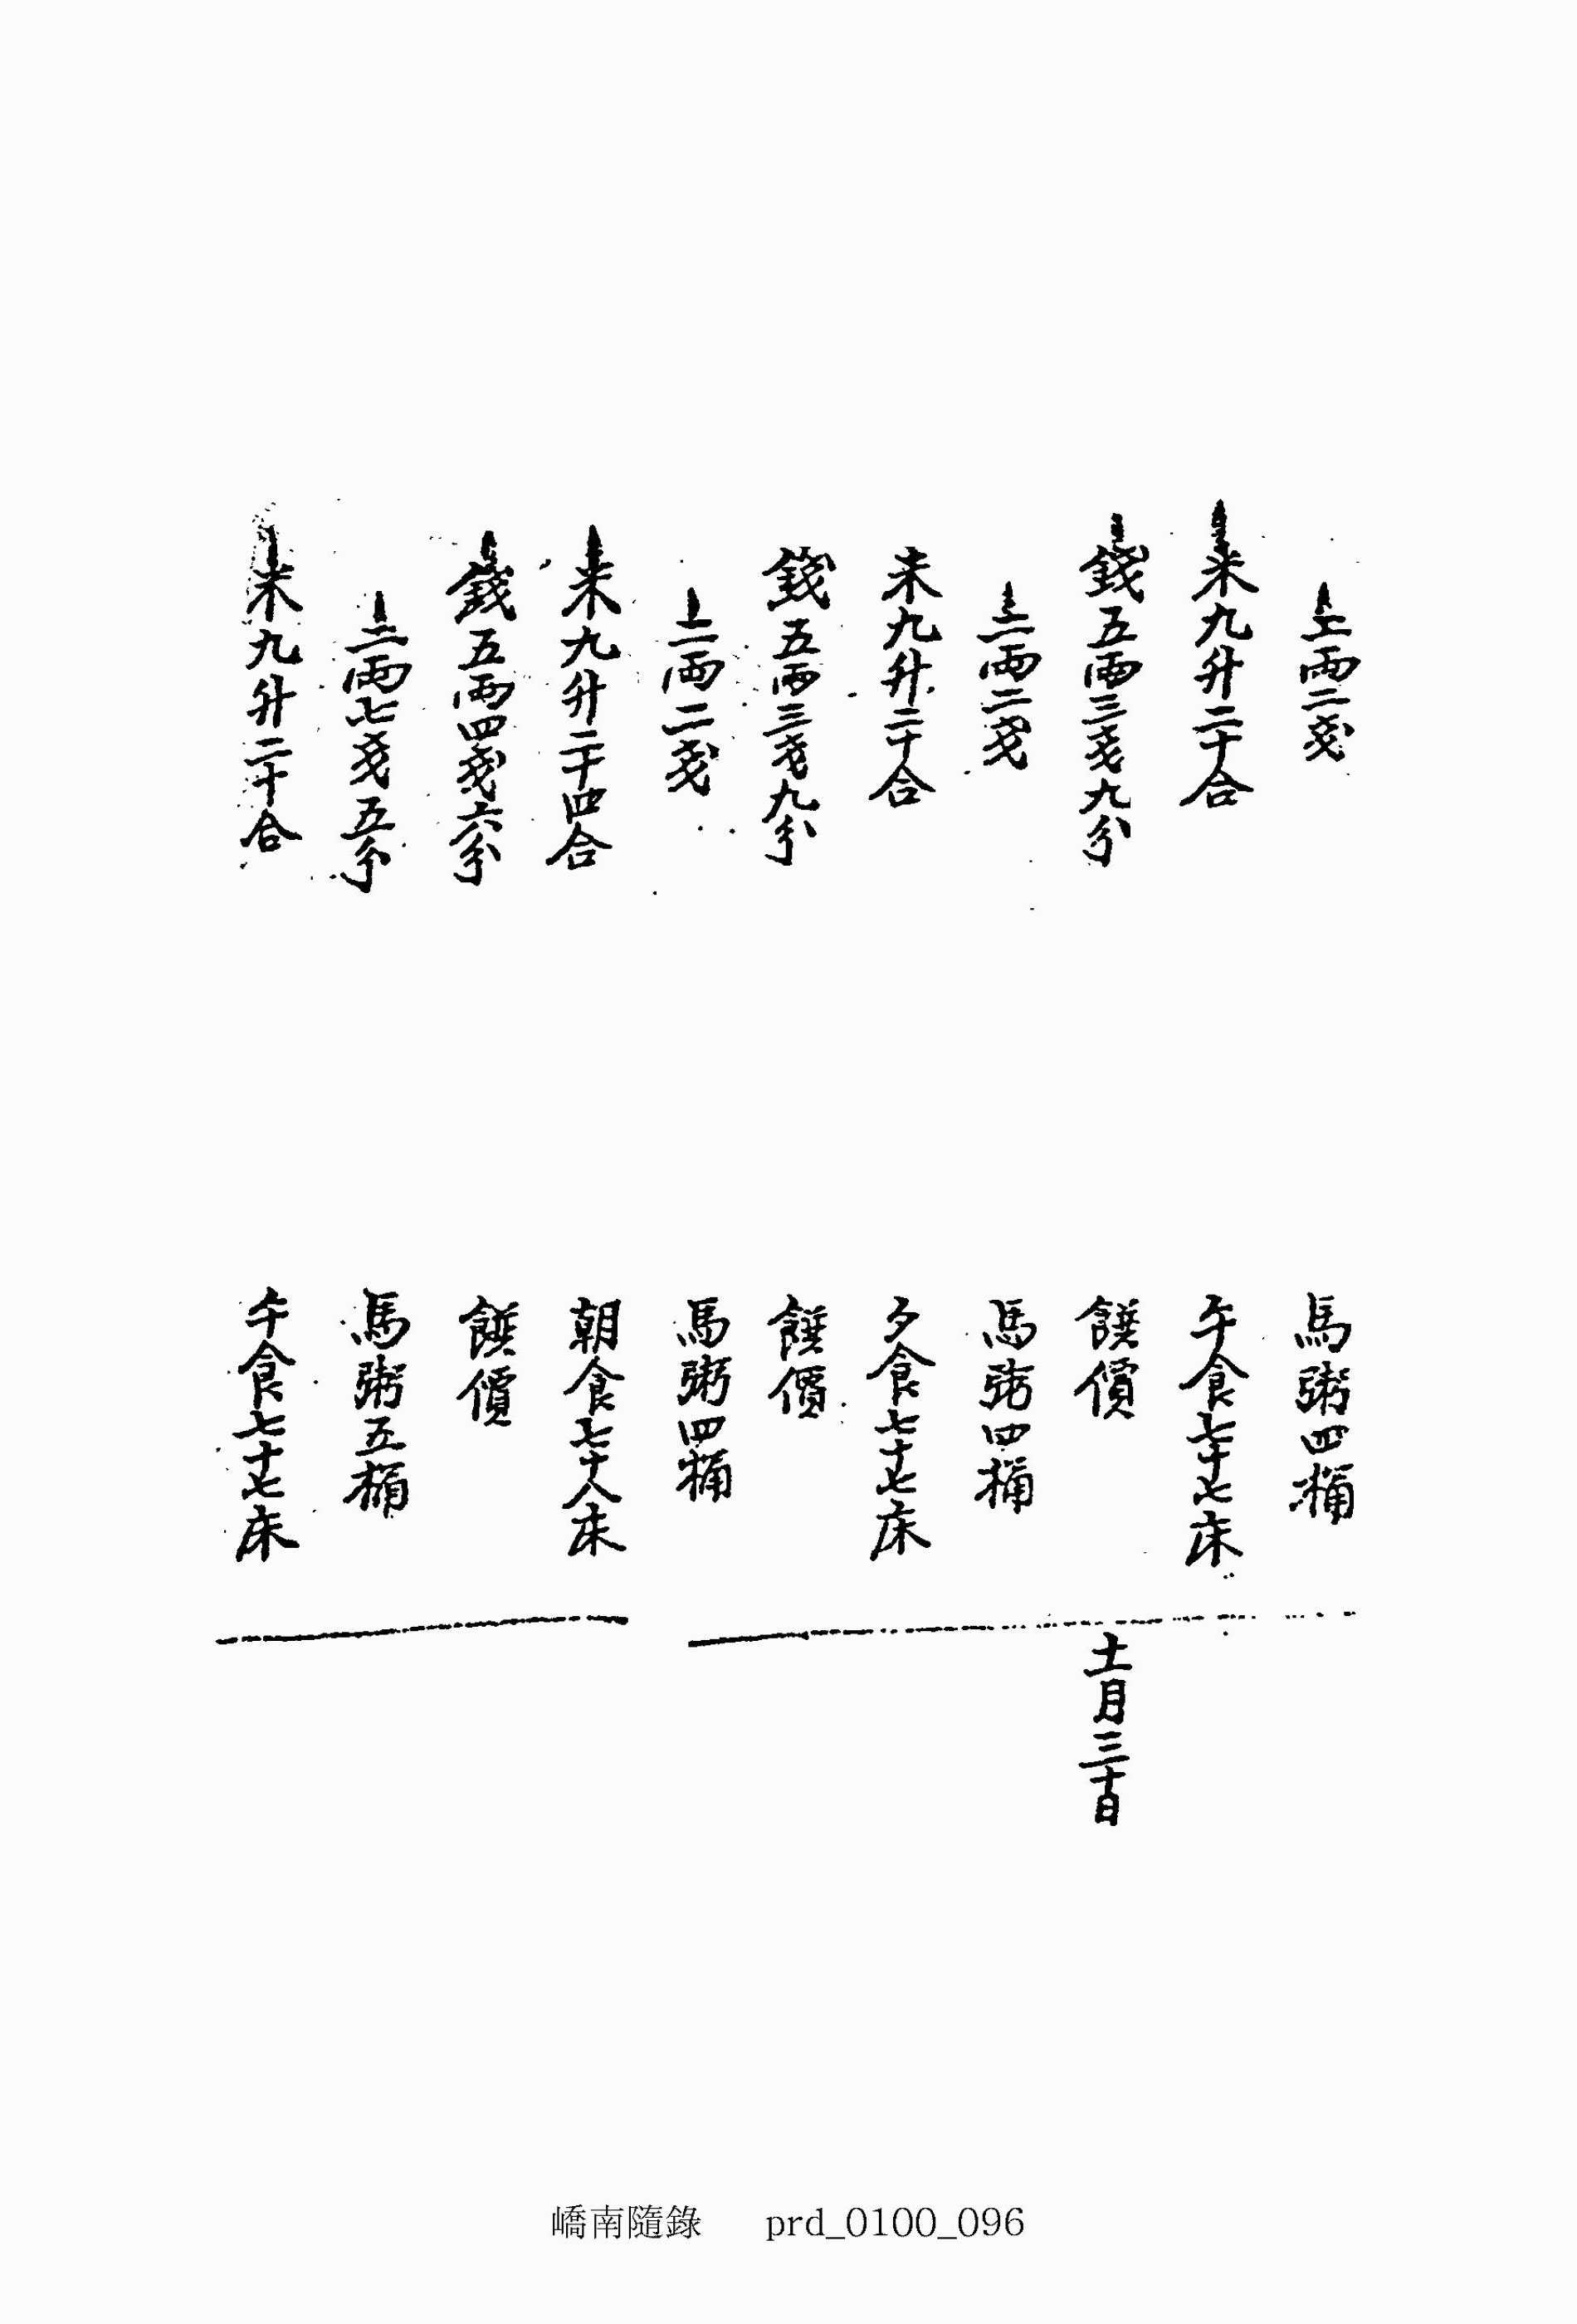 二兩二戔 馬粥四桶
米九升二十合 午食七十七床
錢五兩三戔九分 饌價 十一月三十日
二兩二戔 馬粥四桶
米九升二十合 夕食七十七床
錢五兩三戔九分 饌價
二兩二戔 馬粥四桶
米九升二十四合 朝食七十八床
錢五兩四戔六分 饌價
二兩七戔五分 馬粥五桶
米九升二十合 午食七十七床
嶠南隨錄 prd_0100_096